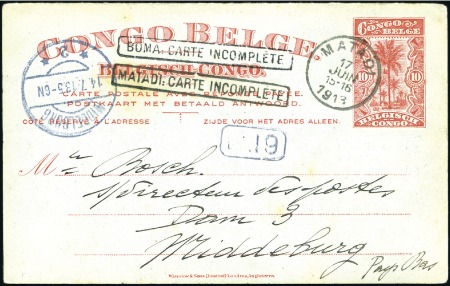 CONGO BELGE
BOMA: CARTE INCOMPLÈTE
BELGISCH-CONGO.
MATADI: CARTE INCOMPLÈTE
CARTE POSTALE AVEC RÉPONSE PAYÉE.
POSTKAART MET BETAALD ANTWOORD.
CÔTÉ RÉSERVÉ À L'ADRESSE
ZIJDE VOOR HET ADRES ALLEEN.
MATADI
17
JUIN
15-16
1913
CONGO
BELGE
10 10
BELGISCH
CONGO
MIDDELBURG
Mr Bosch.
s/directeur des postes
Dam 3
Middelburg
Pays Bas
Waterlow & Sons Limited, Londres, Angleterre.